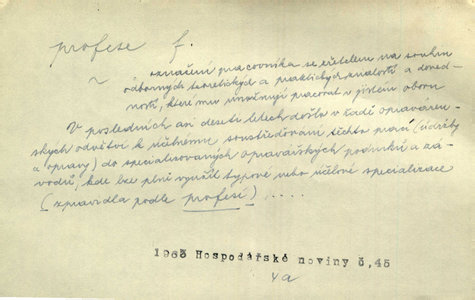 profese f.
~ označení pracovníka se zřetelem na souhrn
odborných teoretických a praktických znalostí a doved-
ností, které mu umožňují pracovat v jistém oboru
V posledních deseti letech došlo v řadě opraváren-
ských odvětví k účelnému soustřeďování těchto prací (údržby
a opravy) do specializovaných opravářských podniků a zá-
vodů, kde lze plně využít typové nebo účelové specializace
(zpravidla podle profesí), ....
1963 Hospodářské noviny č,45
4a